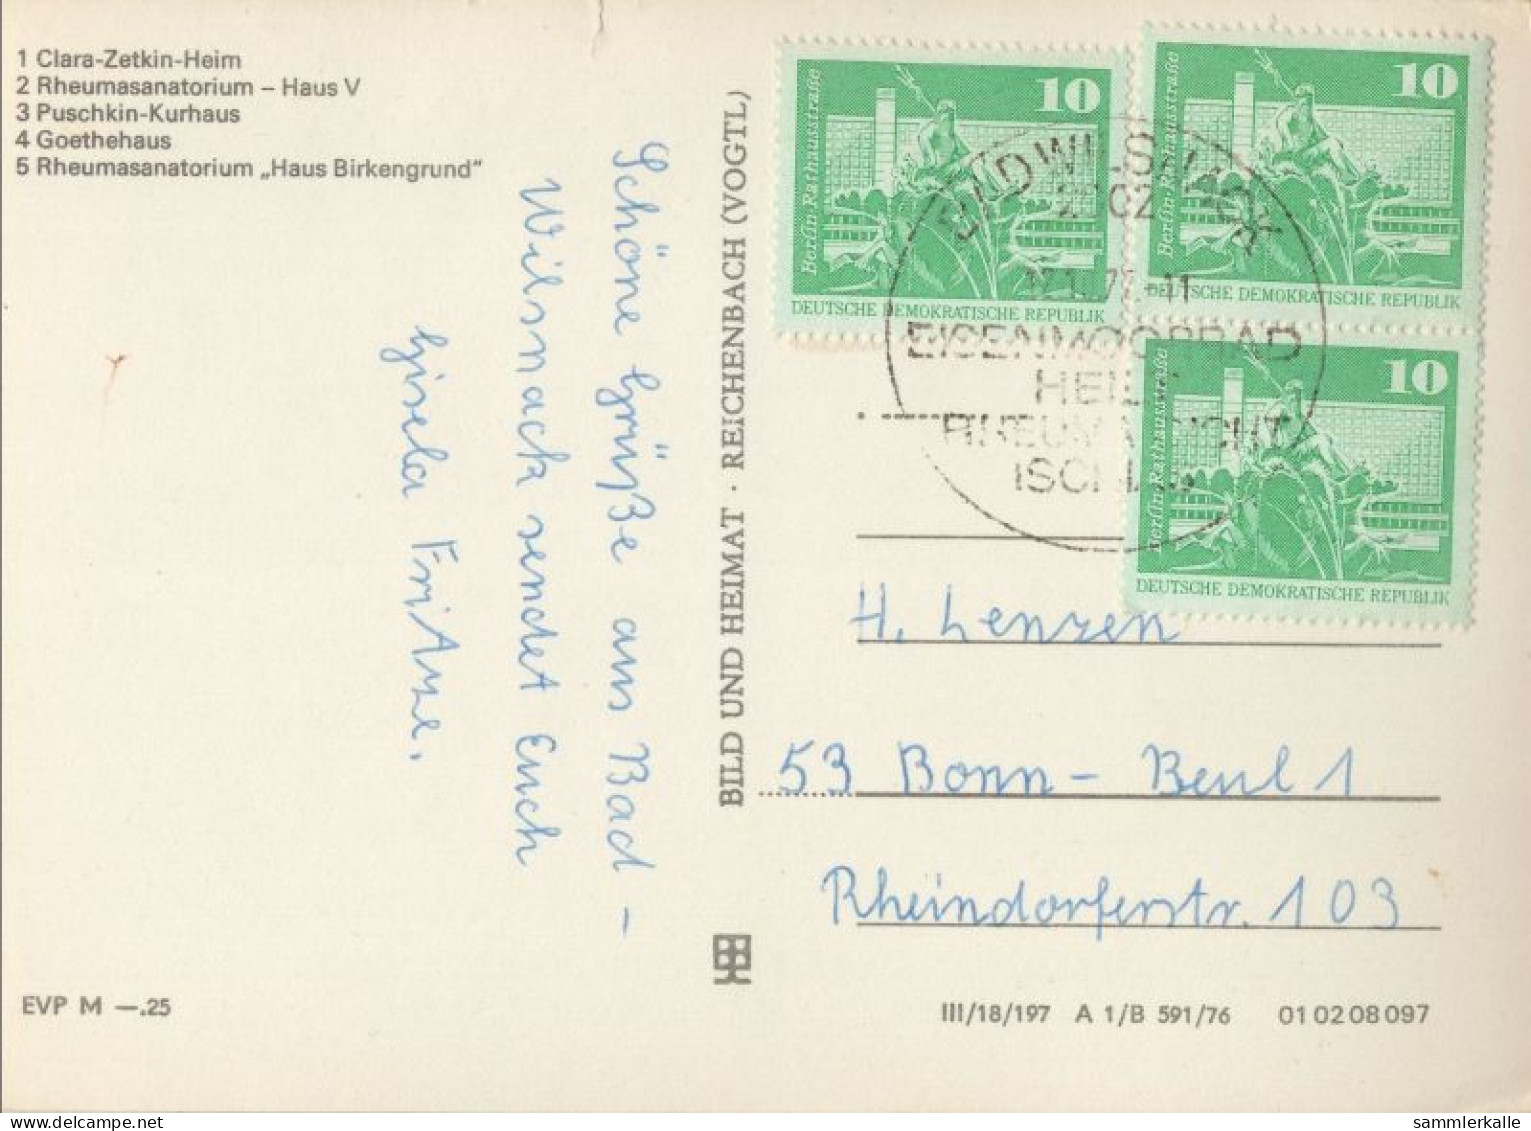 1 Clara-Zetkin-Heim
2 Rheumasanatorium – Haus V
3 Puschkin-Kurhaus
4 Goethehaus
5 Rheumasanatorium „Haus Birkengrund“
Schöne Grüße aus Bad-
Wilsnack sendet Euch
Gisela Fritze.
EVP M —.25
BILD UND HEIMAT · REICHENBACH (VOGTL)
10
Berlin-Rathausstraße
DEUTSCHE DEMOKRATISCHE REPUBLIK
10
Berlin-Rathausstraße
DEUTSCHE DEMOKRATISCHE REPUBLIK
10
Berlin-Rathausstraße
DEUTSCHE DEMOKRATISCHE REPUBLIK
BAD WILSNACK
EISENMOORBAD
HEILT
RHEUMA GICHT
ISCHIAS
H. Lenzen
53 Bonn - Beul 1
Rheindorferstr. 103
III/18/197 A 1/B 591/76 01 02 08 097
sammlerkalle